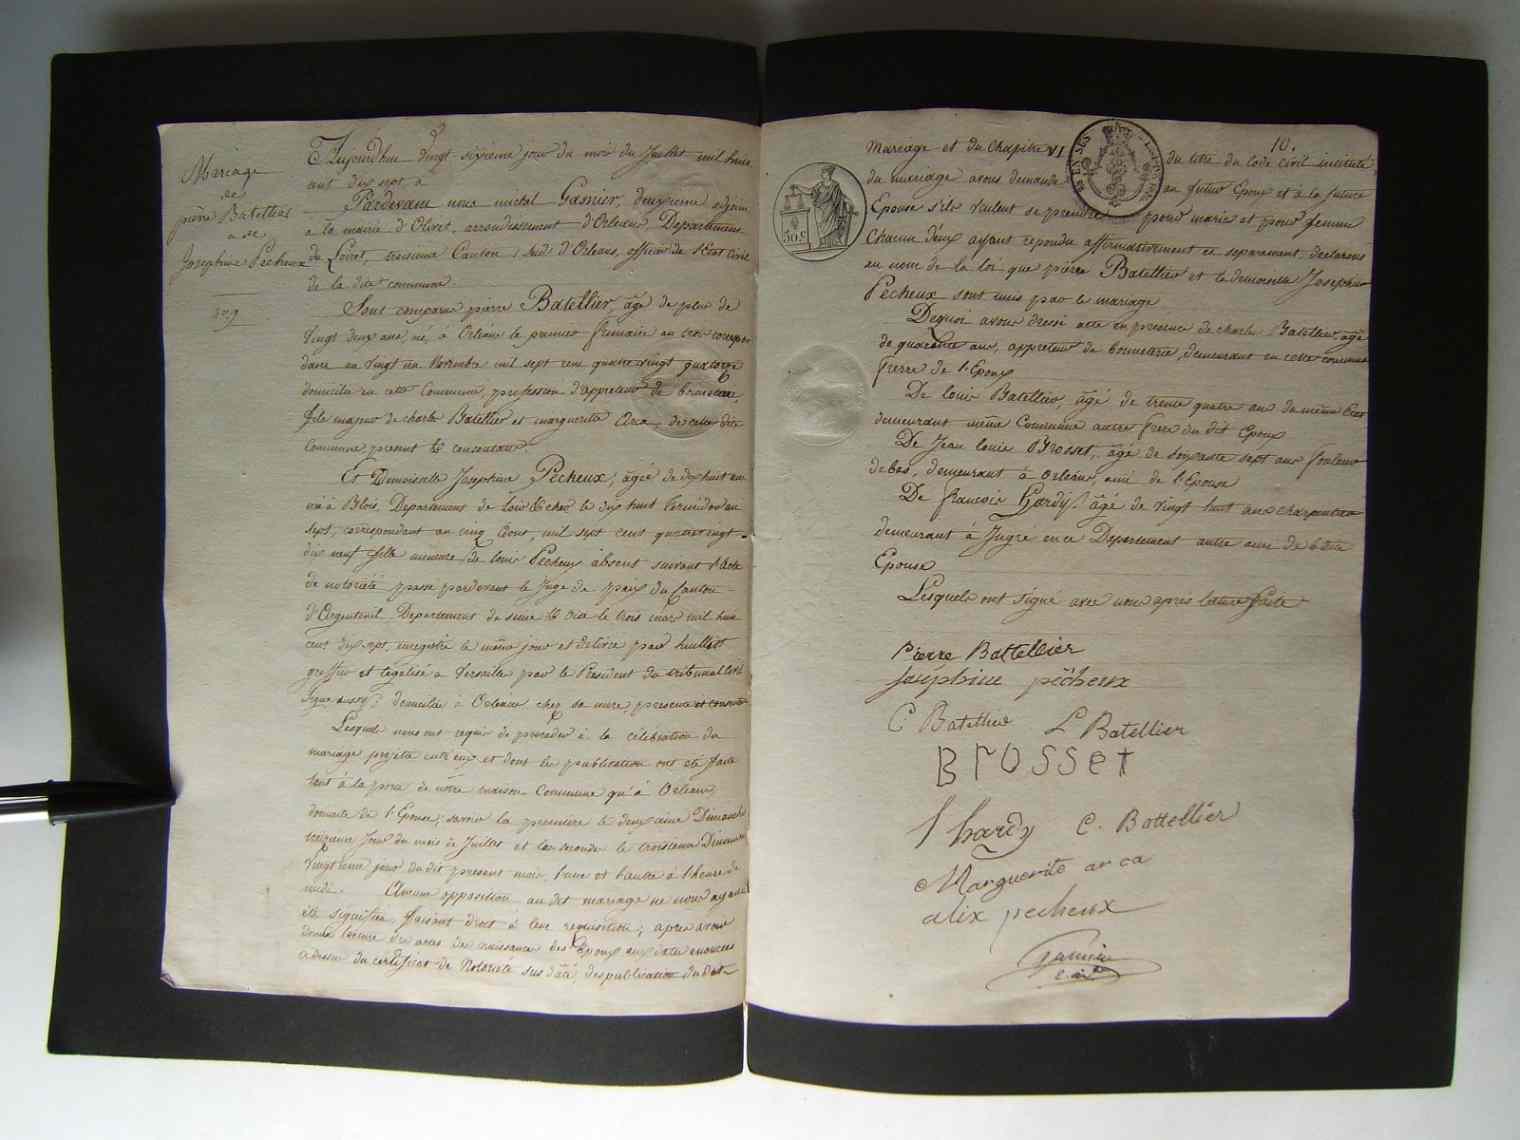 Mariage
de
pierre Batellier
a Me
Josephine Pecheux
Nº 9
Aujourdhui vingt sixieme jour du mois du Juillet mil huit
cent dix sept à
Pardevant nous michel Garnier, deuxieme adjoint
a la mairie d'Olivet, arrondissement d'Orléans, Departement
du Loiret, troisieme Canton (sud) d'Orleans, officier de l'Etat Civil
de la dite commune.
Sont comparus pierre Batellier, âgé de plus de
vingt deux ans, né, à Orléans le premier frimaire an trois correspon
dant au vingt un Novembre mil sept cent quatre vingt quatorze
domicilié en cette Commune, profession d'appreteur de
fils majeur de charles Batellier et marguerite Arca de cette dite
Commune present & consentant.
Et Demoiselle Josephine Pecheux, âgée de dix huit ans
née à Blois, Departement de Loir & cher le dix huit Termidor an
sept, correspondant au cinq Aout, mil sept cent quatre vingt
dix neuf fille mineure de louis Pecheux absent suivant l'acte
de notoriété passé pardevant le Juge de paix du Canton
d'Argenteuil Departement de seine & oise le trois mars mil huit
cent dix sept, enregistré le même jour et délivré par huillet
greffier et légalisé a Versailles par le President du tribunal Civil
signé domiciliée à Orleans chez sa mere, presente et consente
Lesquels nous ont requis de proceder à la célébration du
mariage projetté entr'eux et dont les publications ont été faites
tant à la porte de nôtre maison Commune qu'à Orléans,
domicile de l'Epouse; savoir la premiere le deuxieme Dimanche
treizieme jour du mois de Juillet et la seconde le troisieme Dimanche
vingtieme jour du dit present mois, l'une et l'autre à l'heure de
midi. Aucune opposition au dit mariage ne nous ayant
été signifiée, faisant droit à leur requisition; après avoir
donné lecture des actes de naissance des Epoux aux dates enoncées
ci dessus du certificat de Notoriété sus daté, des publications du dit
10.
Mariage et du Chapitre VI du titre du Code civil intitulé
du mariage avons demandé au futur Epoux et à la future
Epouse s'ils veulent se prendre pour mari et pour femme
Chacun d'eux ayant repondu affirmativement et separement, declarons
au nom de la loi que pierre Batellier et la demoiselle Josephine
Pecheux sont unis par le mariage
Dequoi avons dressé acte en presence de charles Batellier, agé
de quarante ans, appreteur de bonneterie, demeurant en cette commune
frerre de l'Epoux
De louis Batellier, âgé de trente quatre ans du même Etat
demeurant même Commune autre frere du dit Epoux
De Jean louis Brosset, âgé de soixante sept ans fouleur
de bas, demeurant à Orléans, ami de l'Epouse
De francois hardy, âgé de vingt huit ans charpentier
demeurant à Ingré en ce Departement autre ami de la dite
Epouse
Lesquels ont signé avec nous après lecture faite
30 c
Pierre Battellier
Josephine pêcheux
C Batellier L Batellier
BrOSSet
f hardy C. Battellier
Marguerite arca
alix pecheux
Garnier